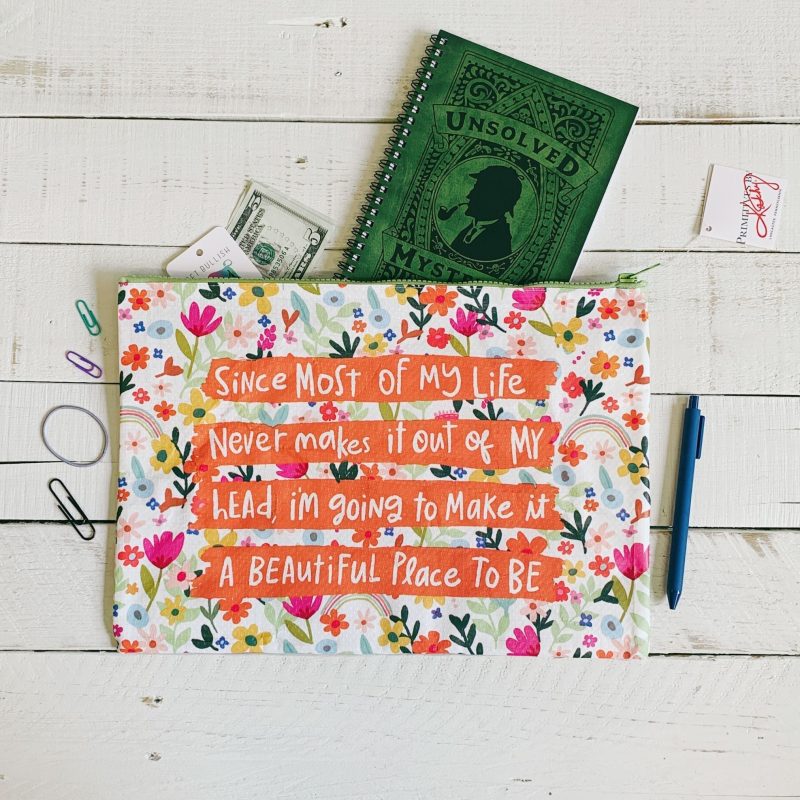 UNSOLVED
PRIMITIVES BY
Kathy
5
BULLISH
SINCE MOST OF MY LIFE
NEVER MAKES IT OUT OF MY
HEAD, I'M GOING TO MAKE IT
A BEAUTIFUL PLACE TO BE